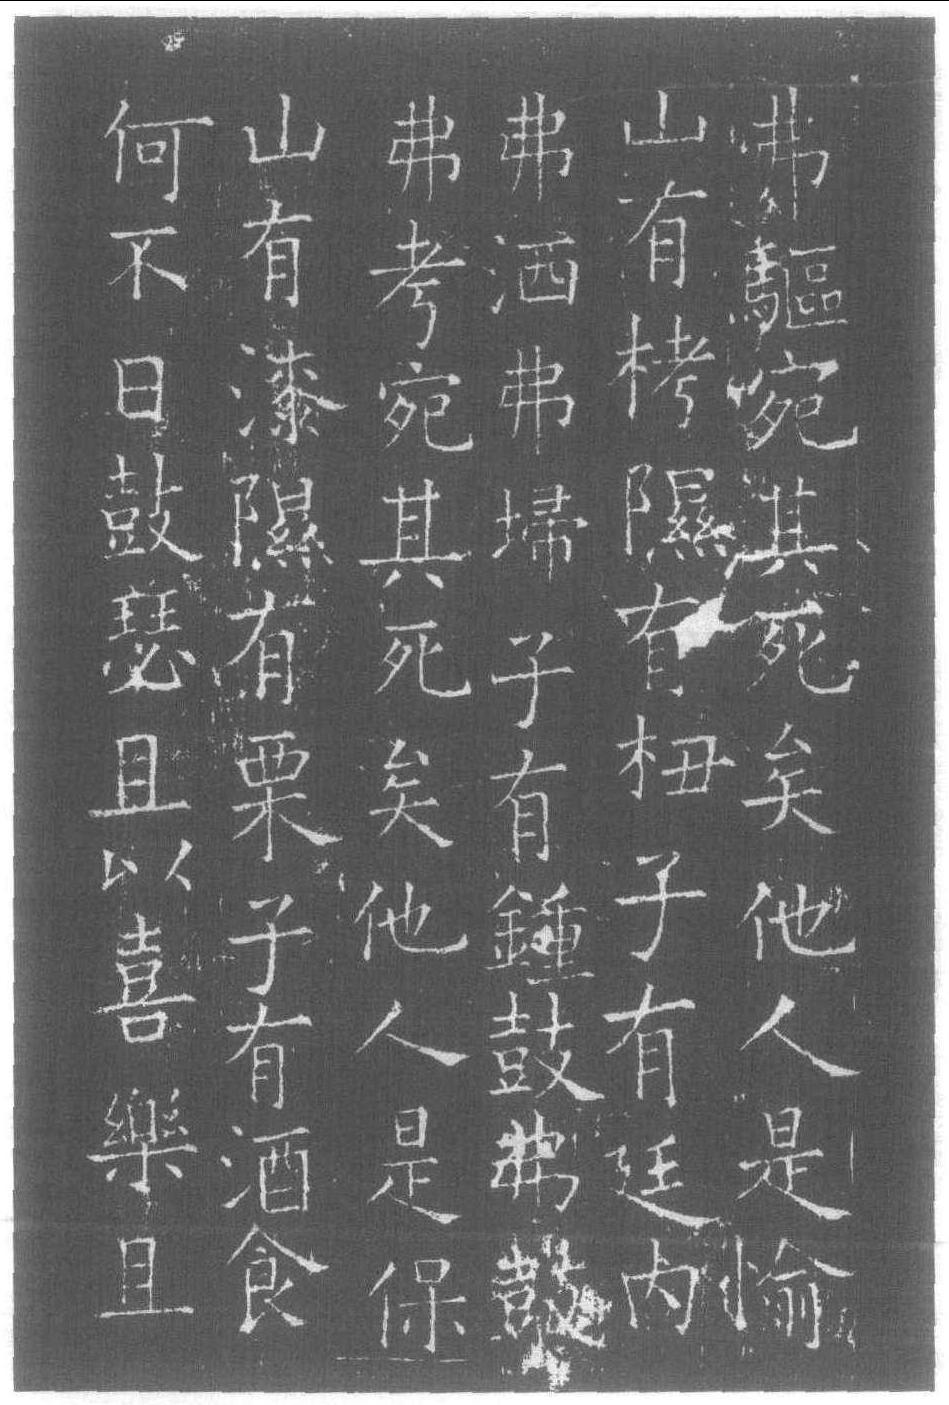 弗驅宛其死矣他人是愉
山有栲隰有杻子有廷内
弗洒弗埽子有鍾鼓弗鼓
弗考宛其死矣他人是保
山有漆隰有栗子有酒食
何不日鼓瑟且以喜樂且